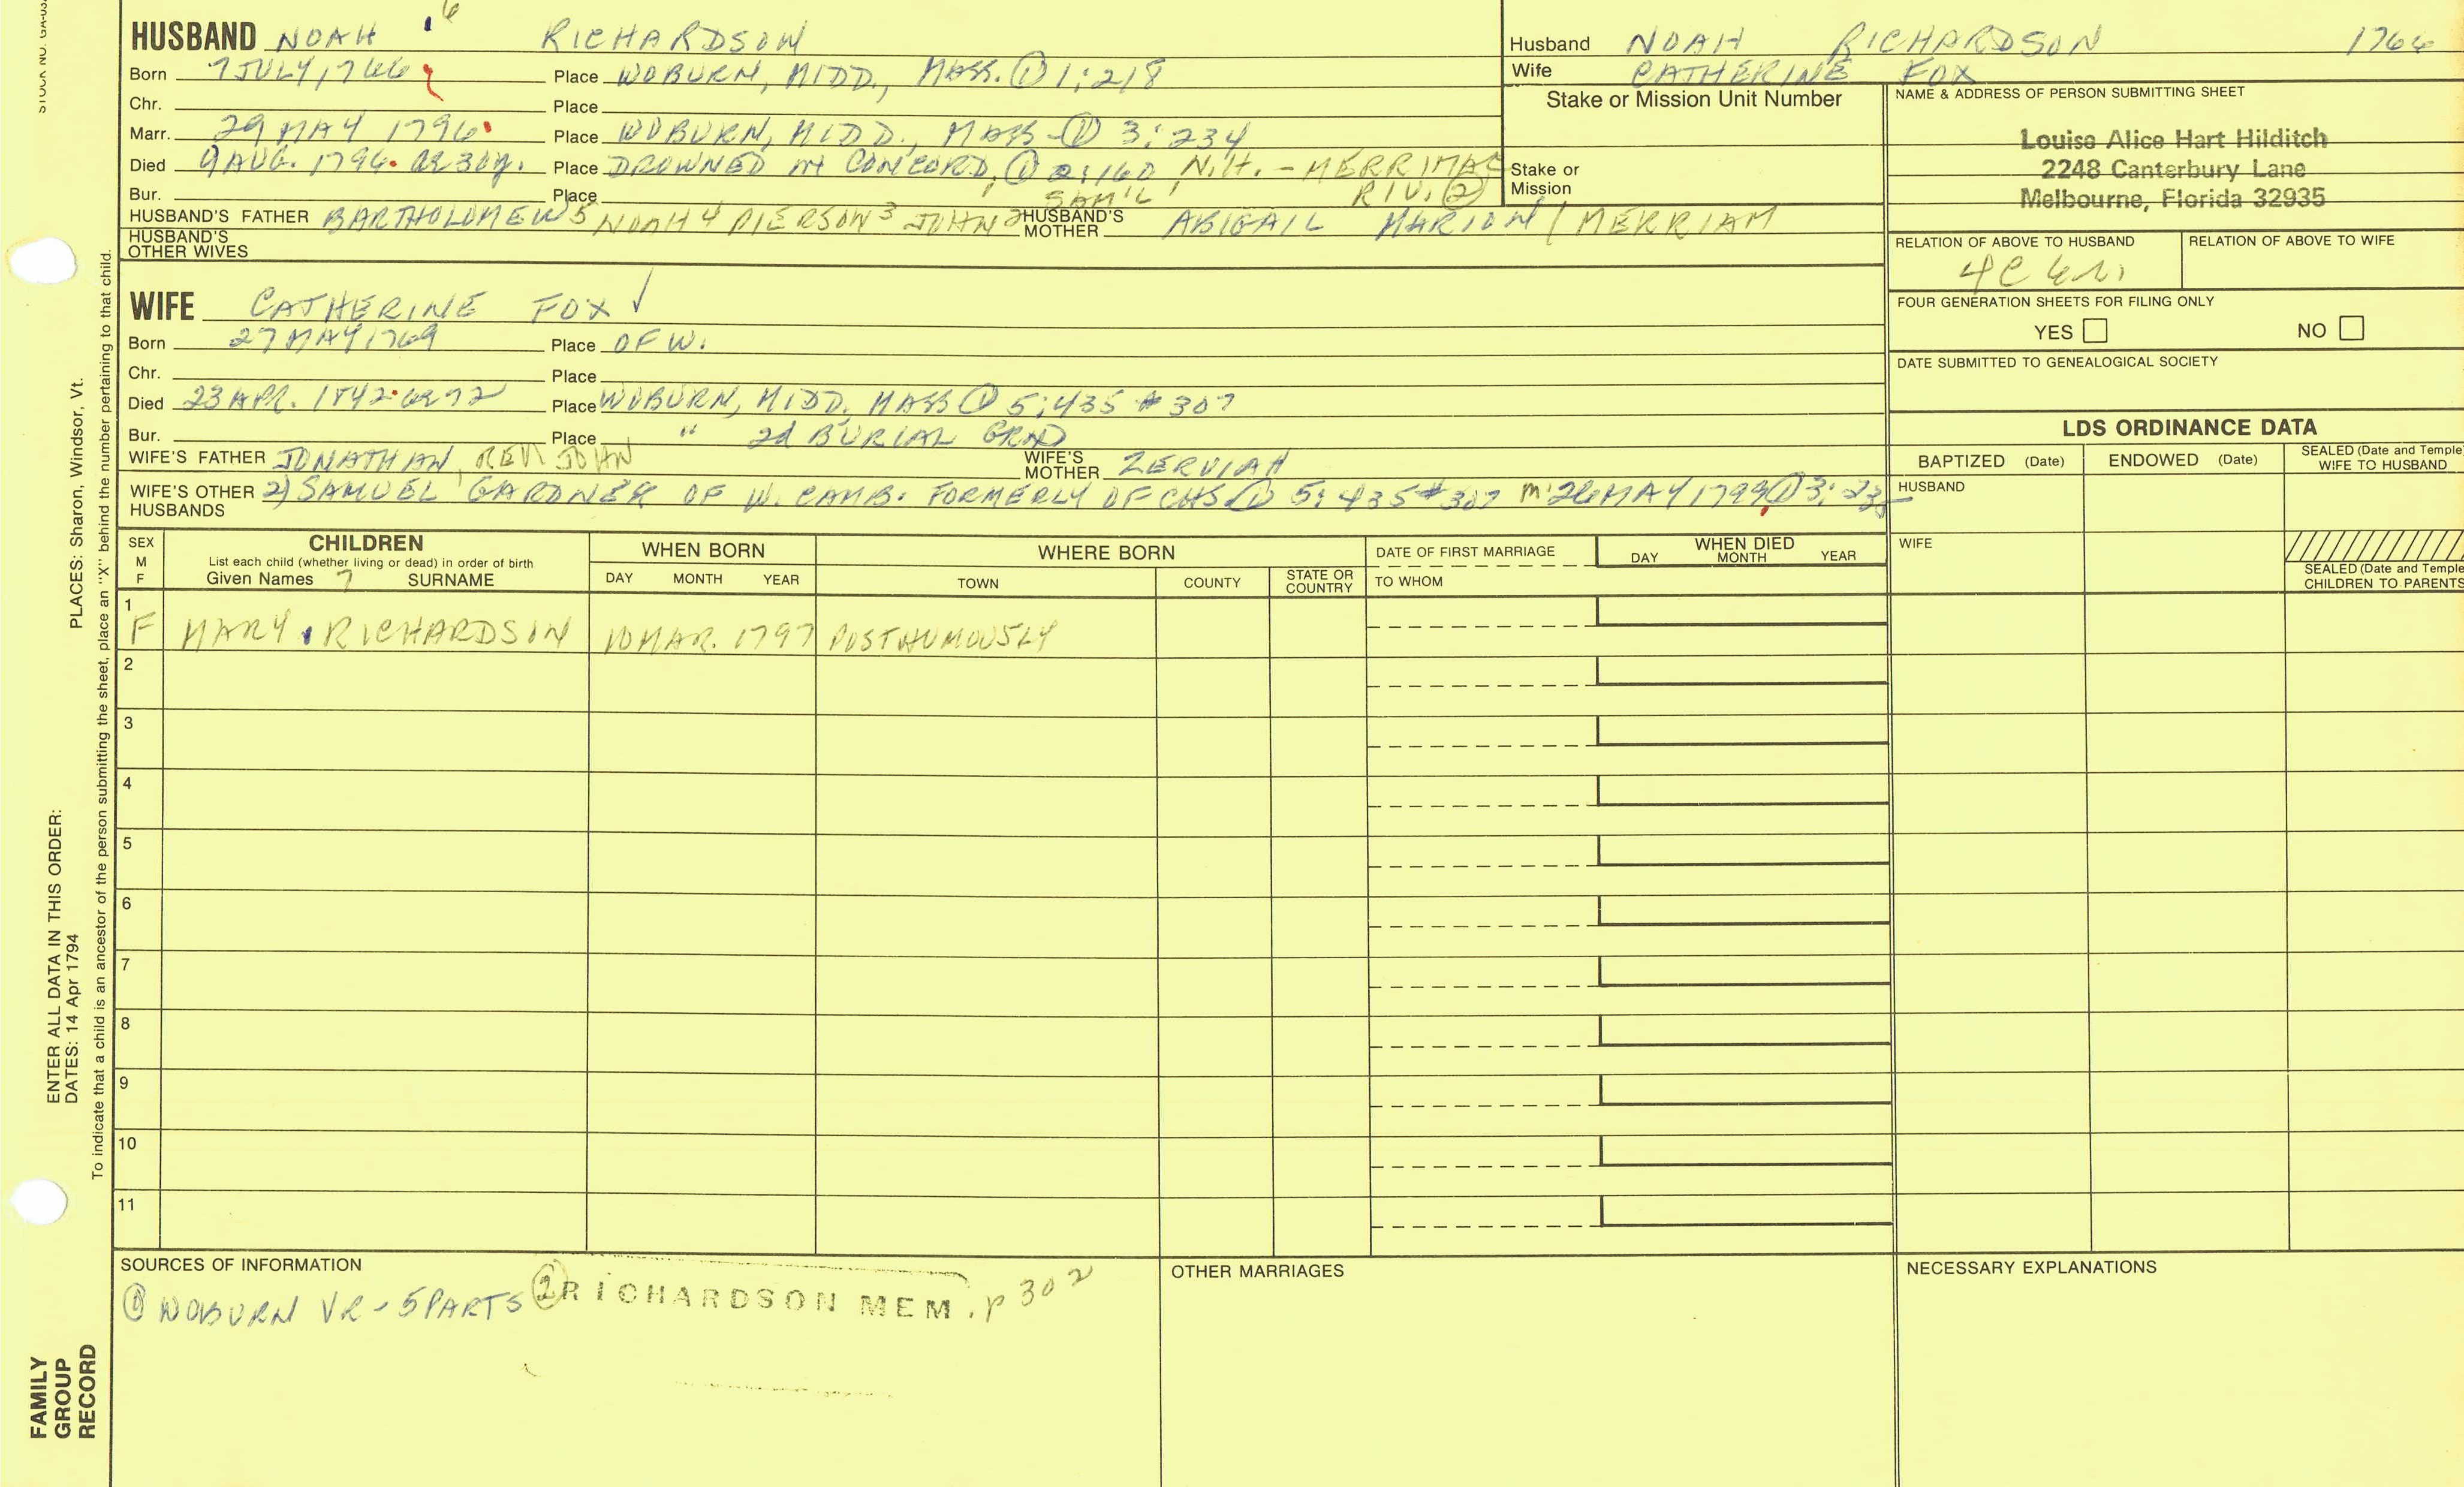 HUSBAND NOAH 6 RICHARDSON
Born 7 JULY 1766 Place WOBURN, MIDD., MASS. ① 1:218
Chr. Place
Marr. 29 MAY 1796 Place WOBURN, MIDD., MASS - ① 3:234
Died 9 AUG. 1796. AE 30y. Place DROWNED AT CONCORD, ① 2:160, N.H. - MERRIMAC
Bur. Place SAM'L RIV. ②
HUSBAND'S FATHER BARTHOLOMEW 5 NOAH 4 PIERSON 3 JOHN 2 HUSBAND'S MOTHER ABIGAIL MARION / MERRIAM
HUSBAND'S OTHER WIVES
WIFE CATHERINE FOX ✓
Born 27 MAY 1769 Place OF W.
Chr. Place
Died 23 APR. 1842 AE 72 Place WOBURN, MIDD. MASS ① 5:435 # 307
Bur. Place " 2d BURIAL GRND
WIFE'S FATHER JONATHAN, REV. JOHN WIFE'S MOTHER ZERVIAH
WIFE'S OTHER HUSBANDS 2) SAMUEL GARDNER OF W. CAMB. FORMERLY OF CHS ① 5:435 # 307 m. 26 MAY 1799 ① 3:235
Husband NOAH RICHARDSON 1766
Wife CATHERINE FOX
Stake or Mission Unit Number
Stake or
Mission
NAME & ADDRESS OF PERSON SUBMITTING SHEET
Louise Alice Hart Hilditch
2248 Canterbury Lane
Melbourne, Florida 32935
RELATION OF ABOVE TO HUSBAND RELATION OF ABOVE TO WIFE
4C
FOUR GENERATION SHEETS FOR FILING ONLY
YES NO
DATE SUBMITTED TO GENEALOGICAL SOCIETY
LDS ORDINANCE DATA
BAPTIZED (Date) ENDOWED (Date) SEALED (Date and Temple) WIFE TO HUSBAND
HUSBAND
WIFE
SEALED (Date and Temple) CHILDREN TO PARENTS
SEX M F
CHILDREN
List each child (whether living or dead) in order of birth
Given Names 7 SURNAME
WHEN BORN
DAY MONTH YEAR
WHERE BORN
TOWN COUNTY STATE OR COUNTRY
DATE OF FIRST MARRIAGE
TO WHOM
WHEN DIED
DAY MONTH YEAR
1
F MARY RICHARDSON 10 MAR. 1797 POSTHUMOUSLY
2
3
4
5
6
7
8
9
10
11
SOURCES OF INFORMATION
① WOBURN VR - 5 PARTS ② RICHARDSON MEM. p 302
OTHER MARRIAGES
NECESSARY EXPLANATIONS
STOCK NO.
PLACES: Sharon, Windsor, Vt.
To indicate that a child is an ancestor of the person submitting the sheet, place an "X" behind the number pertaining to that child.
ENTER ALL DATA IN THIS ORDER:
DATES: 14 Apr 1794
FAMILY
GROUP
RECORD